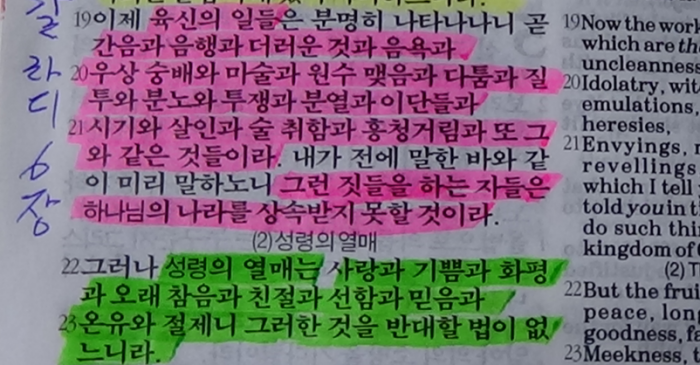 갈
라
디
6
장
19이제 육신의 일들은 분명히 나타나나니 곧
간음과 음행과 더러운 것과 음욕과
20우상 숭배와 마술과 원수 맺음과 다툼과 질
투와 분노와 투쟁과 분열과 이단들과
21시기와 살인과 술 취함과 흥청거림과 또 그
와 같은 것들이라. 내가 전에 말한 바와 같
이 미리 말하노니 그런 짓들을 하는 자들은
하나님의 나라를 상속받지 못할 것이라.
(2)성령의 열매
22그러나 성령의 열매는 사랑과 기쁨과 화평
과 오래 참음과 친절과 선함과 믿음과
23온유와 절제니 그러한 것을 반대할 법이 없
느니라.
19Now the work
which are th
uncleanness
20Idolatry, wit
emulations
heresies,
21Envyings, m
revellings
which I tell
told you in ti
do such thi
kingdom of
(2) T
22But the frui
peace, long
goodness, fa
23Meekness, t